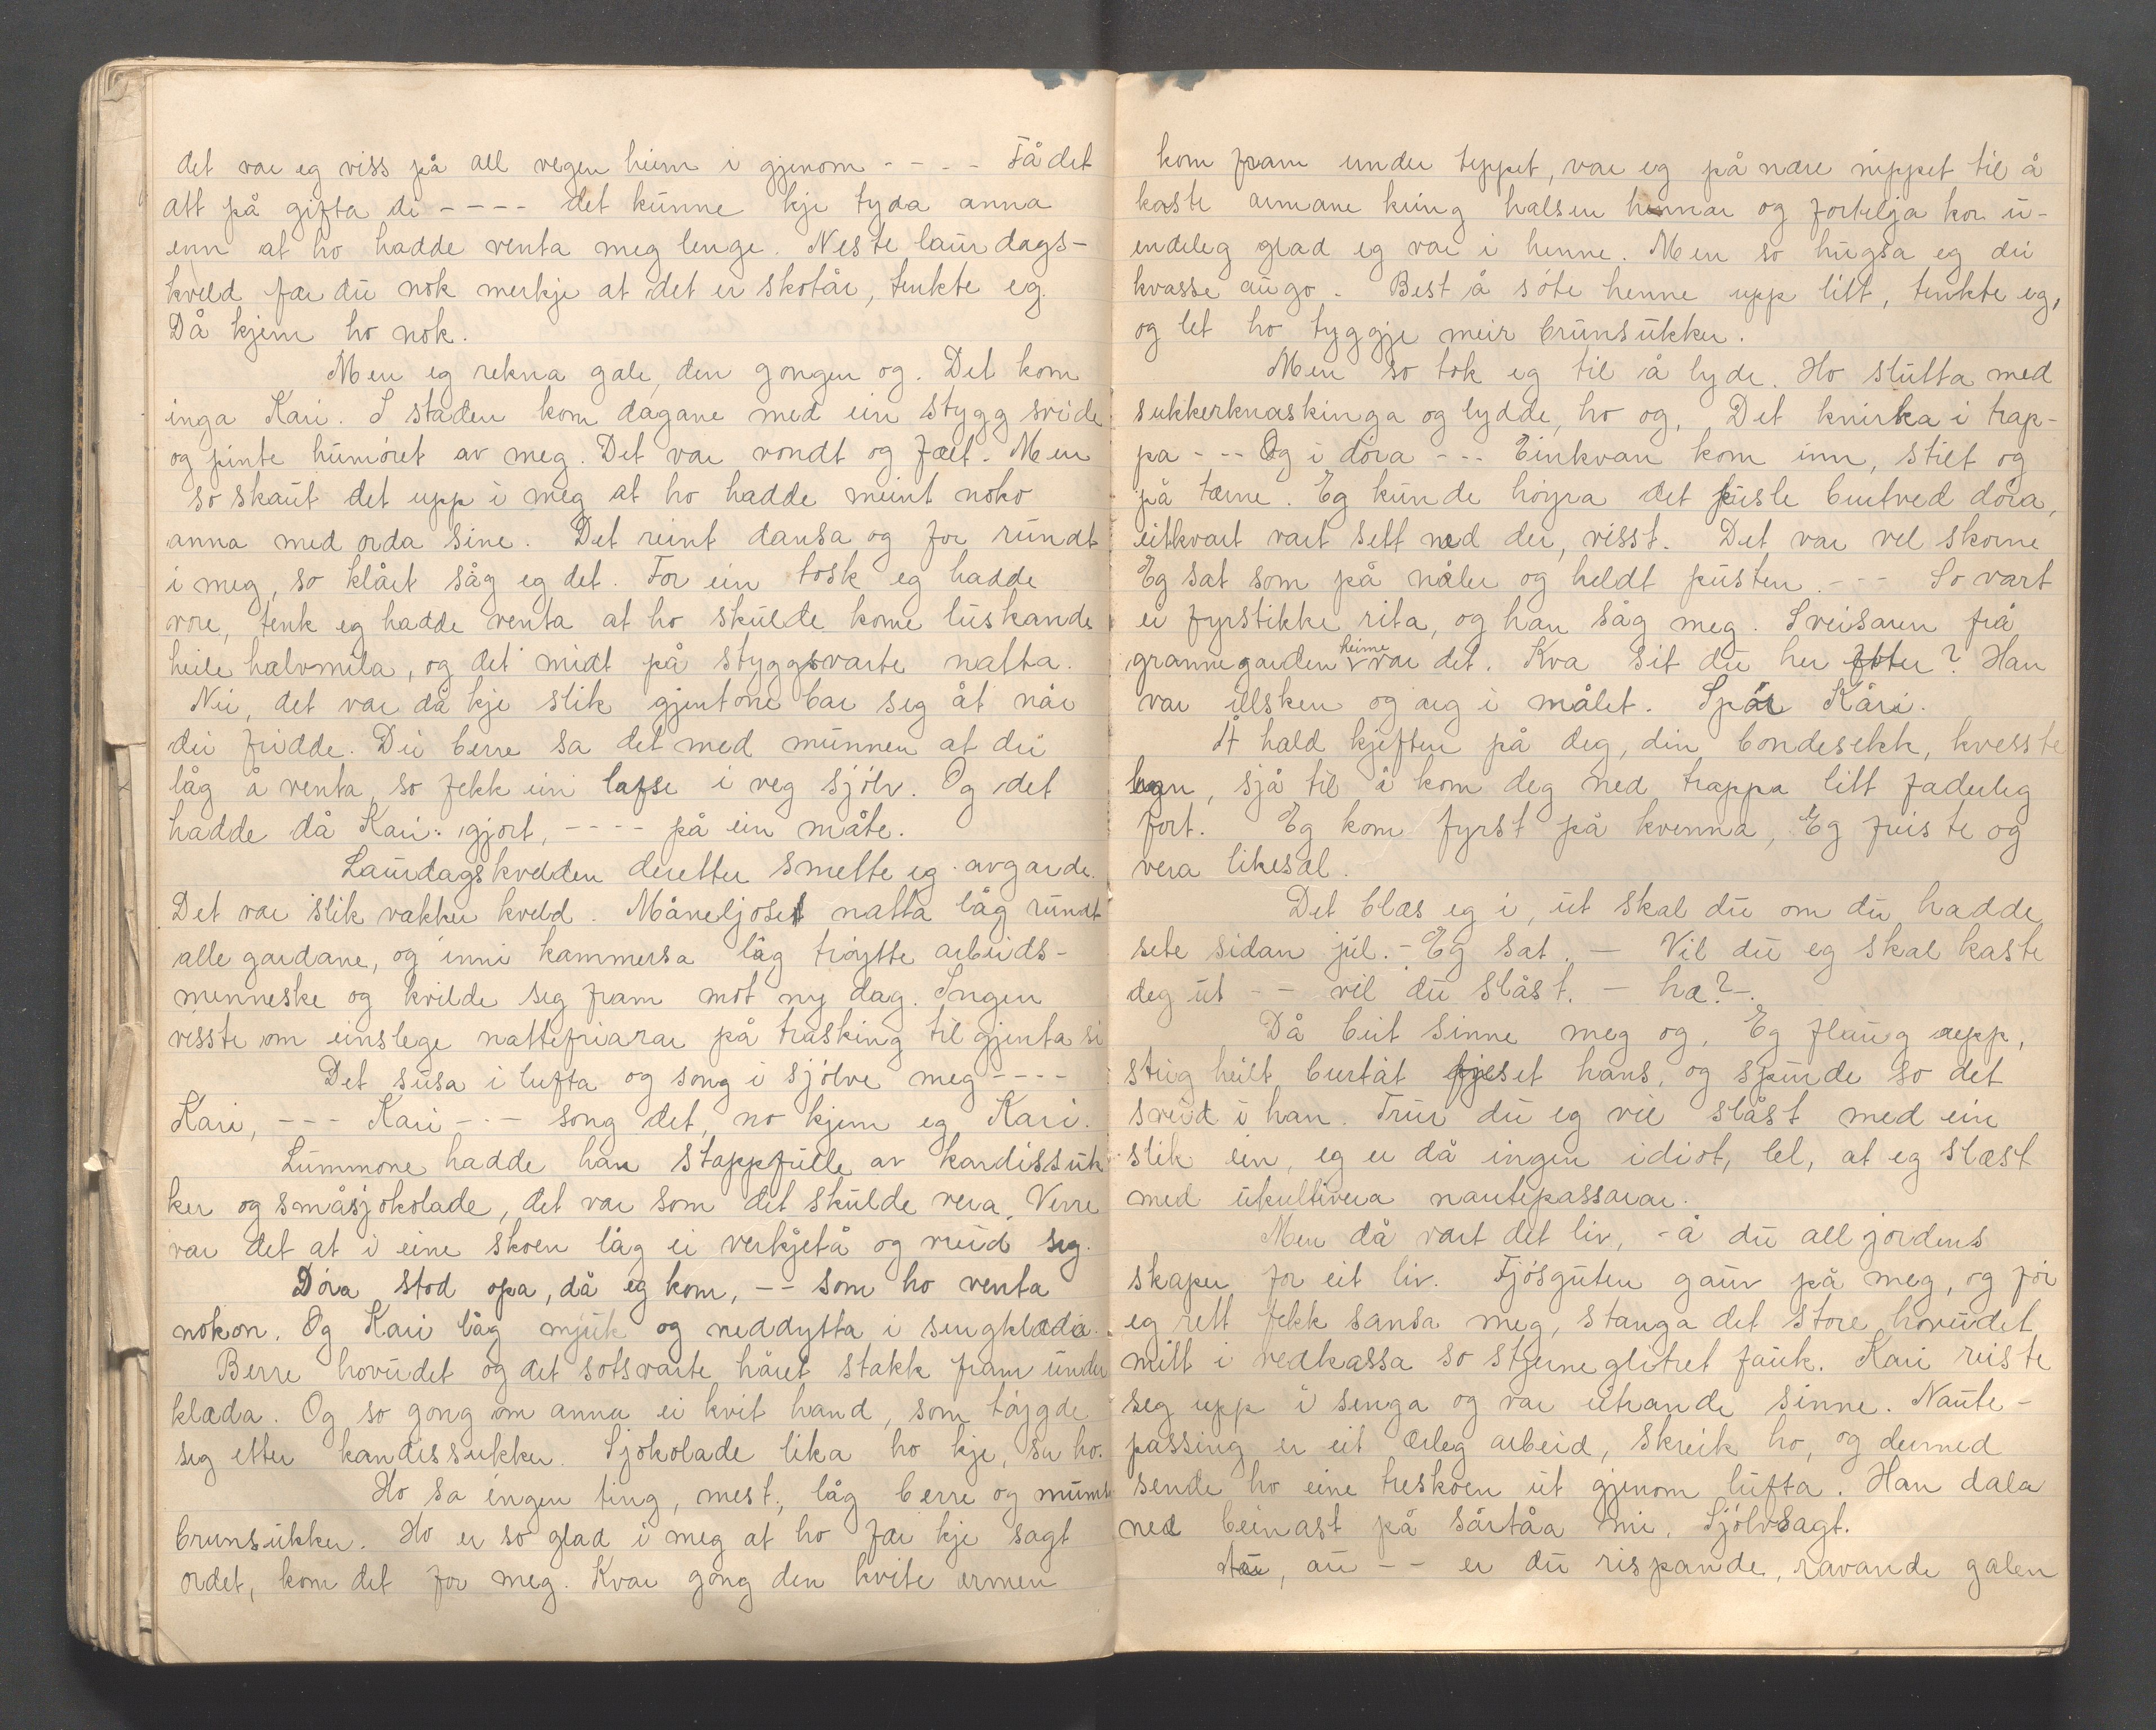 det var eg viss på all vegen heim i gjenom - - - - Få det
att på gifta di - - - - det kunne kje tyda anna
enn at ho hadde venta meg lenge. Neste laurdags-
kveld får du nok merkje at det er skotår, tenkte eg.
Då kjem ho nok.
Men eg rekna gale, den gongen og. Det kom
inga Kari. I staden kom dagane med ein stygg svide
og pinte humøret av meg. Det var vondt og fælt. Men
so skaut det upp i meg at ho hadde meint noko
anna med orda sine. Det reint dansa og for rundt
i meg, so klårt såg eg det. For ein tosk eg hadde
vore, tenk eg hadde venta at ho skulde kome luskande
heile halvmila, og det midt på styggsvarte natta.
Nei, det var då kje slik gjentone bar seg åt når
dei fridde. Dei berre sa det med munnen at dei
låg å venta, so fekk ein lafse i veg sjølv. Og det
hadde då Kari gjort, - - - - på ein måte.
Laurdagskvelden deretter smette eg avgarde.
Det var slik vakker kveld. Måneljoset natta låg rundt
alle gardane, og inni kammersa låg trøytte arbeids-
menneske og kvilde seg fram mot ny dag. Ingen
visste om einslege nattefriarar på trasking til gjenta si
Det susa i lufta og song i sjølve meg - - - -
Kari, - - - Kari - - - song det, no kjem eg Kari.
Lummone hadde han stappfulle av kandissuk
ker og småsjokolade, det var som det skulde vera. Verre
var det at i eine skoen låg ei verkjetå og vreid seg.
Døra stod opa, då eg kom, - - som ho venta
nokon. Og Kari låg mjuk og neddytta i sengklæda.
Berre hovudet og det sotsvarte håret stakk fram under
klæda. Og so gong om anna ei kvit hand, som tøygde
seg etter kandissukker. Sjokolade lika ho kje, sa ho.
Ho sa ingen ting, mest, låg berre og mumla
brunsukker. Ho er so glad i meg at ho får kje sagt
ordet, kom det for meg. Kvar gong den kvite armen
kom fram under teppet, var eg på nære nippet til å
kaste armane kring halsen hennar og fortelja kor u-
endeleg glad eg var i henne. Men so hugsa eg dei
kvasse augo. Best å søte henne upp litt, tenkte eg,
og let ho tyggje meir brunsukker.
Men so tok eg til å lyde. Ho slutta med
sukkerknaskinga og lydde, ho og. Det knirka i trap-
pa - - - Og i døra - - - Einkvan kom inn, stilt og
på tærne. Eg kunde høyra det pusle burtved døra,
eitkvart vart sett ned der, visst. Det var vel skorne
Eg sat som på nåler og heldt pusten. - - - So vart
ei fyrstikke rita, og han såg meg. Sveisaren frå
grannegarden heime var det. Kva sit du her etter? Han
var illsken og arg i målet. Spør Kåri.
Å hald kjeften på deg, din bondesekk, kvesste
han, sjå til å kom deg ned trappa litt faderleg
fort. Eg kom fyrst på kvenna, Eg freiste og
vera likesæl.
Det blæs eg i, ut skal du om du hadde
sete sidan jul. - Eg sat. - Vil du eg skal kaste
deg ut - - vil du slåst. - hæ? -.
Då beit sinne meg og, Eg flaug upp,
steig heilt burtåt fjeset hans, og spurde so det
sveid i han. Trur du eg vil slåst med ein
slik ein, eg er då ingen idiot, lel, at eg slæst
med ukultivera nautepassarar.
Men då vart det liv, - å du all jordens
skaper for eit liv. Fjøsguten gauv på meg, og før
eg rett fekk sansa meg, stanga det store hovudet
mitt i vedkassa so stjerneglitret fauk. Kari reiste
seg upp i senga og var utrande sinne. Naute-
passing er eit ærleg arbeid, skreik ho, og dermed
sende ho eine treskoen ut gjenom lufta. Han dala
ned beinast på sårtåa mi. Sjølvsagt.
Au, au - - er du rispande, ravande galen